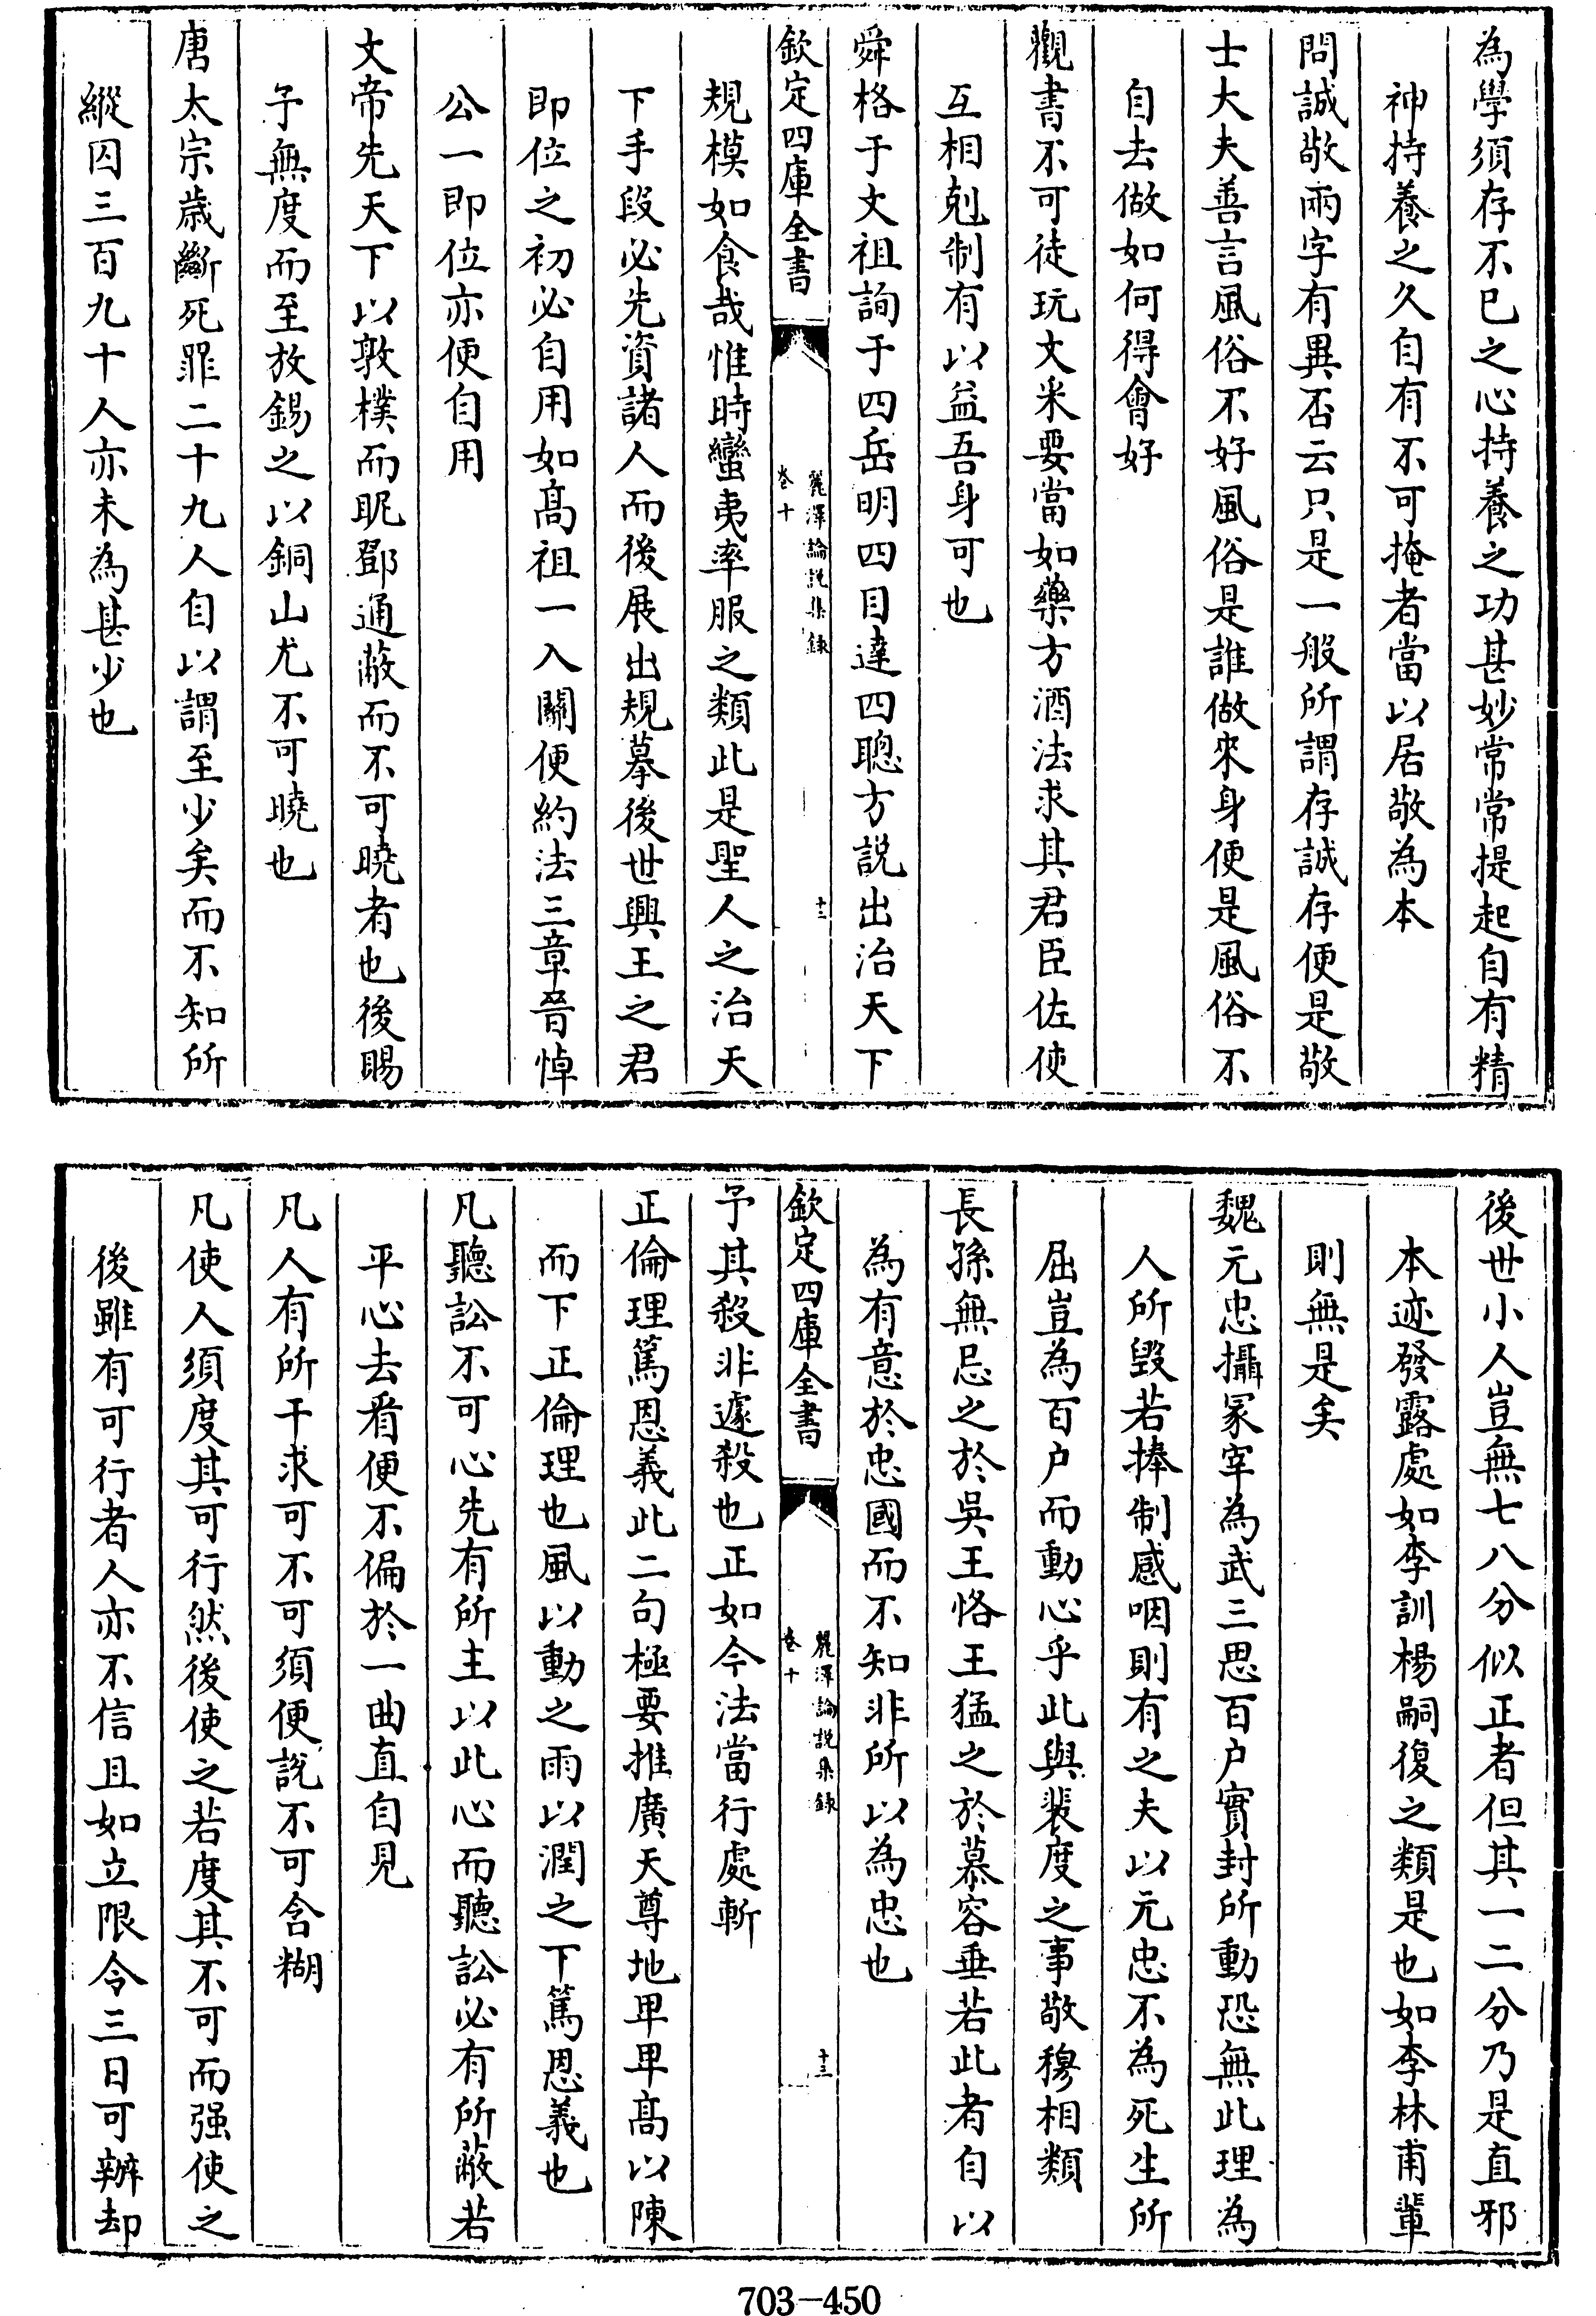 為學須存不已之心持養之功甚妙常常提起自有精
神持養之久自有不可掩者當以居敬為本
問誠敬兩字有異否云只是一般所謂存誠存便是敬
士大夫善言風俗不好風俗是誰做來身便是風俗不
自去做如何得㑹好
觀書不可徒玩文采要當如藥方酒法求其君臣佐使
互相剋制有以益吾身可也
舜格于文祖詢于四岳明四目達四聰方說出治天下
欽定四庫全書
麗澤論說集錄
卷十
十二
規模如食哉惟時蠻夷率服之類此是聖人之治天
下手段必先資諸人而後展出規摹後世興王之君
即位之初必自用如髙祖一入關便約法三章晉悼
公一即位亦便自用
文帝先天下以敦樸而昵鄧通蔽而不可曉者也後賜
予無度而至放錫之以銅山尤不可曉也
唐太宗歲斷死罪二十九人自以謂至少矣而不知所
縱囚三百九十人亦未為甚少也
後世小人豈無七八分似正者但其一二分乃是直邪
本迹發露處如李訓楊嗣復之類是也如李林甫輩
則無是矣
魏元忠攝冢宰為武三思百户實封所動恐無此理為
人所毀若捧制感咽則有之夫以元忠不為死生所
屈豈為百户而動心乎此與裴度之事敬穆相類
長孫無忌之於吳王恪王猛之於慕容垂若此者自以
為有意於忠國而不知非所以為忠也
欽定四庫全書
麗澤論說集錄
卷十
十三
予其殺非遽殺也正如今法當行處斬
正倫理篤恩義此二句極要推廣天尊地卑卑髙以陳
而下正倫理也風以動之雨以潤之下篤恩義也
凡聽訟不可心先有所主以此心而聽訟必有所蔽若
平心去看便不偏於一曲直自見
凡人有所干求可不可須便說不可含糊
凡使人須度其可行然後使之若度其不可而强使之
後雖有可行者人亦不信且如立限令三日可辦却
703-450